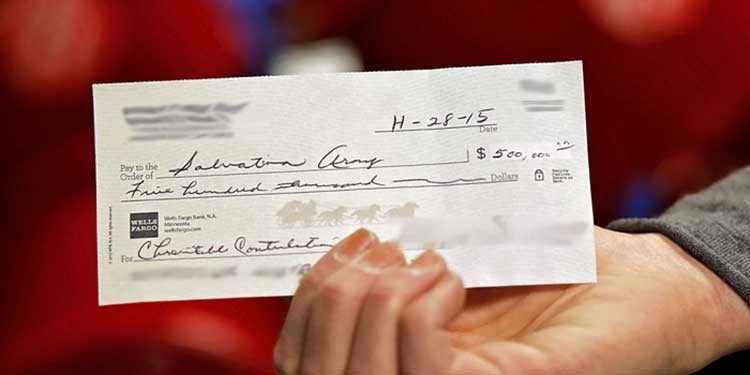 11-28-15
Date
Pay to the
Order of Salvation Army $ 500,000
Five hundred thousand Dollars
Security
Features
Details on
Back
WELLS
FARGO
Wells Fargo Bank, N.A.
Minnesota
wellsfargo.com
For Charitable Contribution